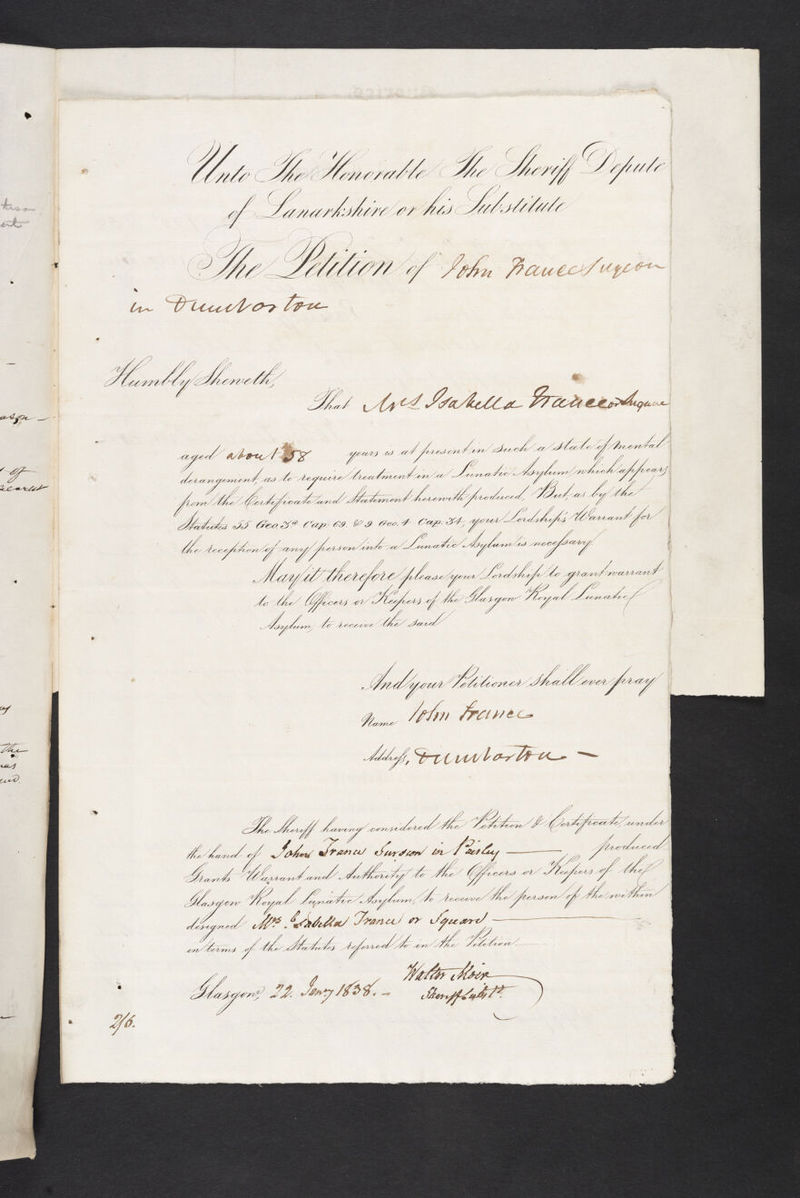 Unto The Honorable The Sheriff Depute
of Lanarkshire or his Substitute
The Petition of John France Surgeon
in Dumbarton
Humbly Sheweth,
That Mrs Isabella France or Square
aged about 58 years is at present in such a state of mental
derangement, as to require treatment in a Lunatic Asylum which appears
from the Certificate and Statement herewith produced, But as by the
Statutes 55 Geo. 3d Cap. 69. & 9 Geo. 4 Cap. 34, your Lordship's Warrant for
the reception of any person into a Lunatic Asylum is necessary.
May it therefore please your Lordship to grant warrant
to the Officers or Keepers of the Glasgow Royal Lunatic
Asylum, to receive the said
And your Petitioner shall ever pray
Name John France
Address, Dumbarton —
The Sheriff having considered the Petition & Certificate, under
the hand of John France Surgeon in Paisley — produced
Grants Warrant and Authority to the Officers or Keepers of the
Glasgow Royal Lunatic Asylum, to receive the person of the within
designed Mrs Isabella France or Square —
in terms of the Statutes referred to in the Petition.
Glasgow, 22. Jany 1838. – Walter Moir
Sheriff Subst.
2/6.
the